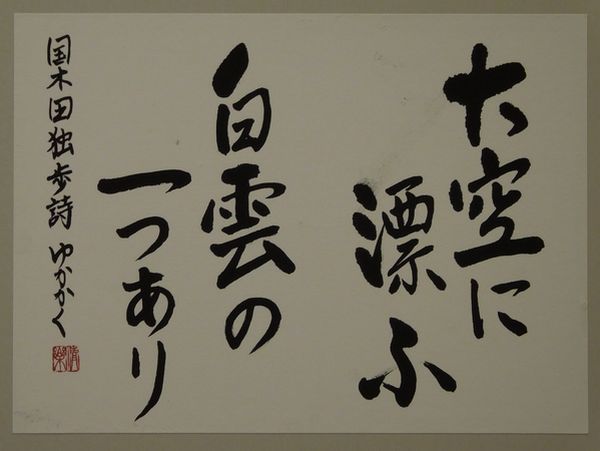 大空に
漂ふ
白雲の
一つあり
国木田独歩詩 ゆかかく